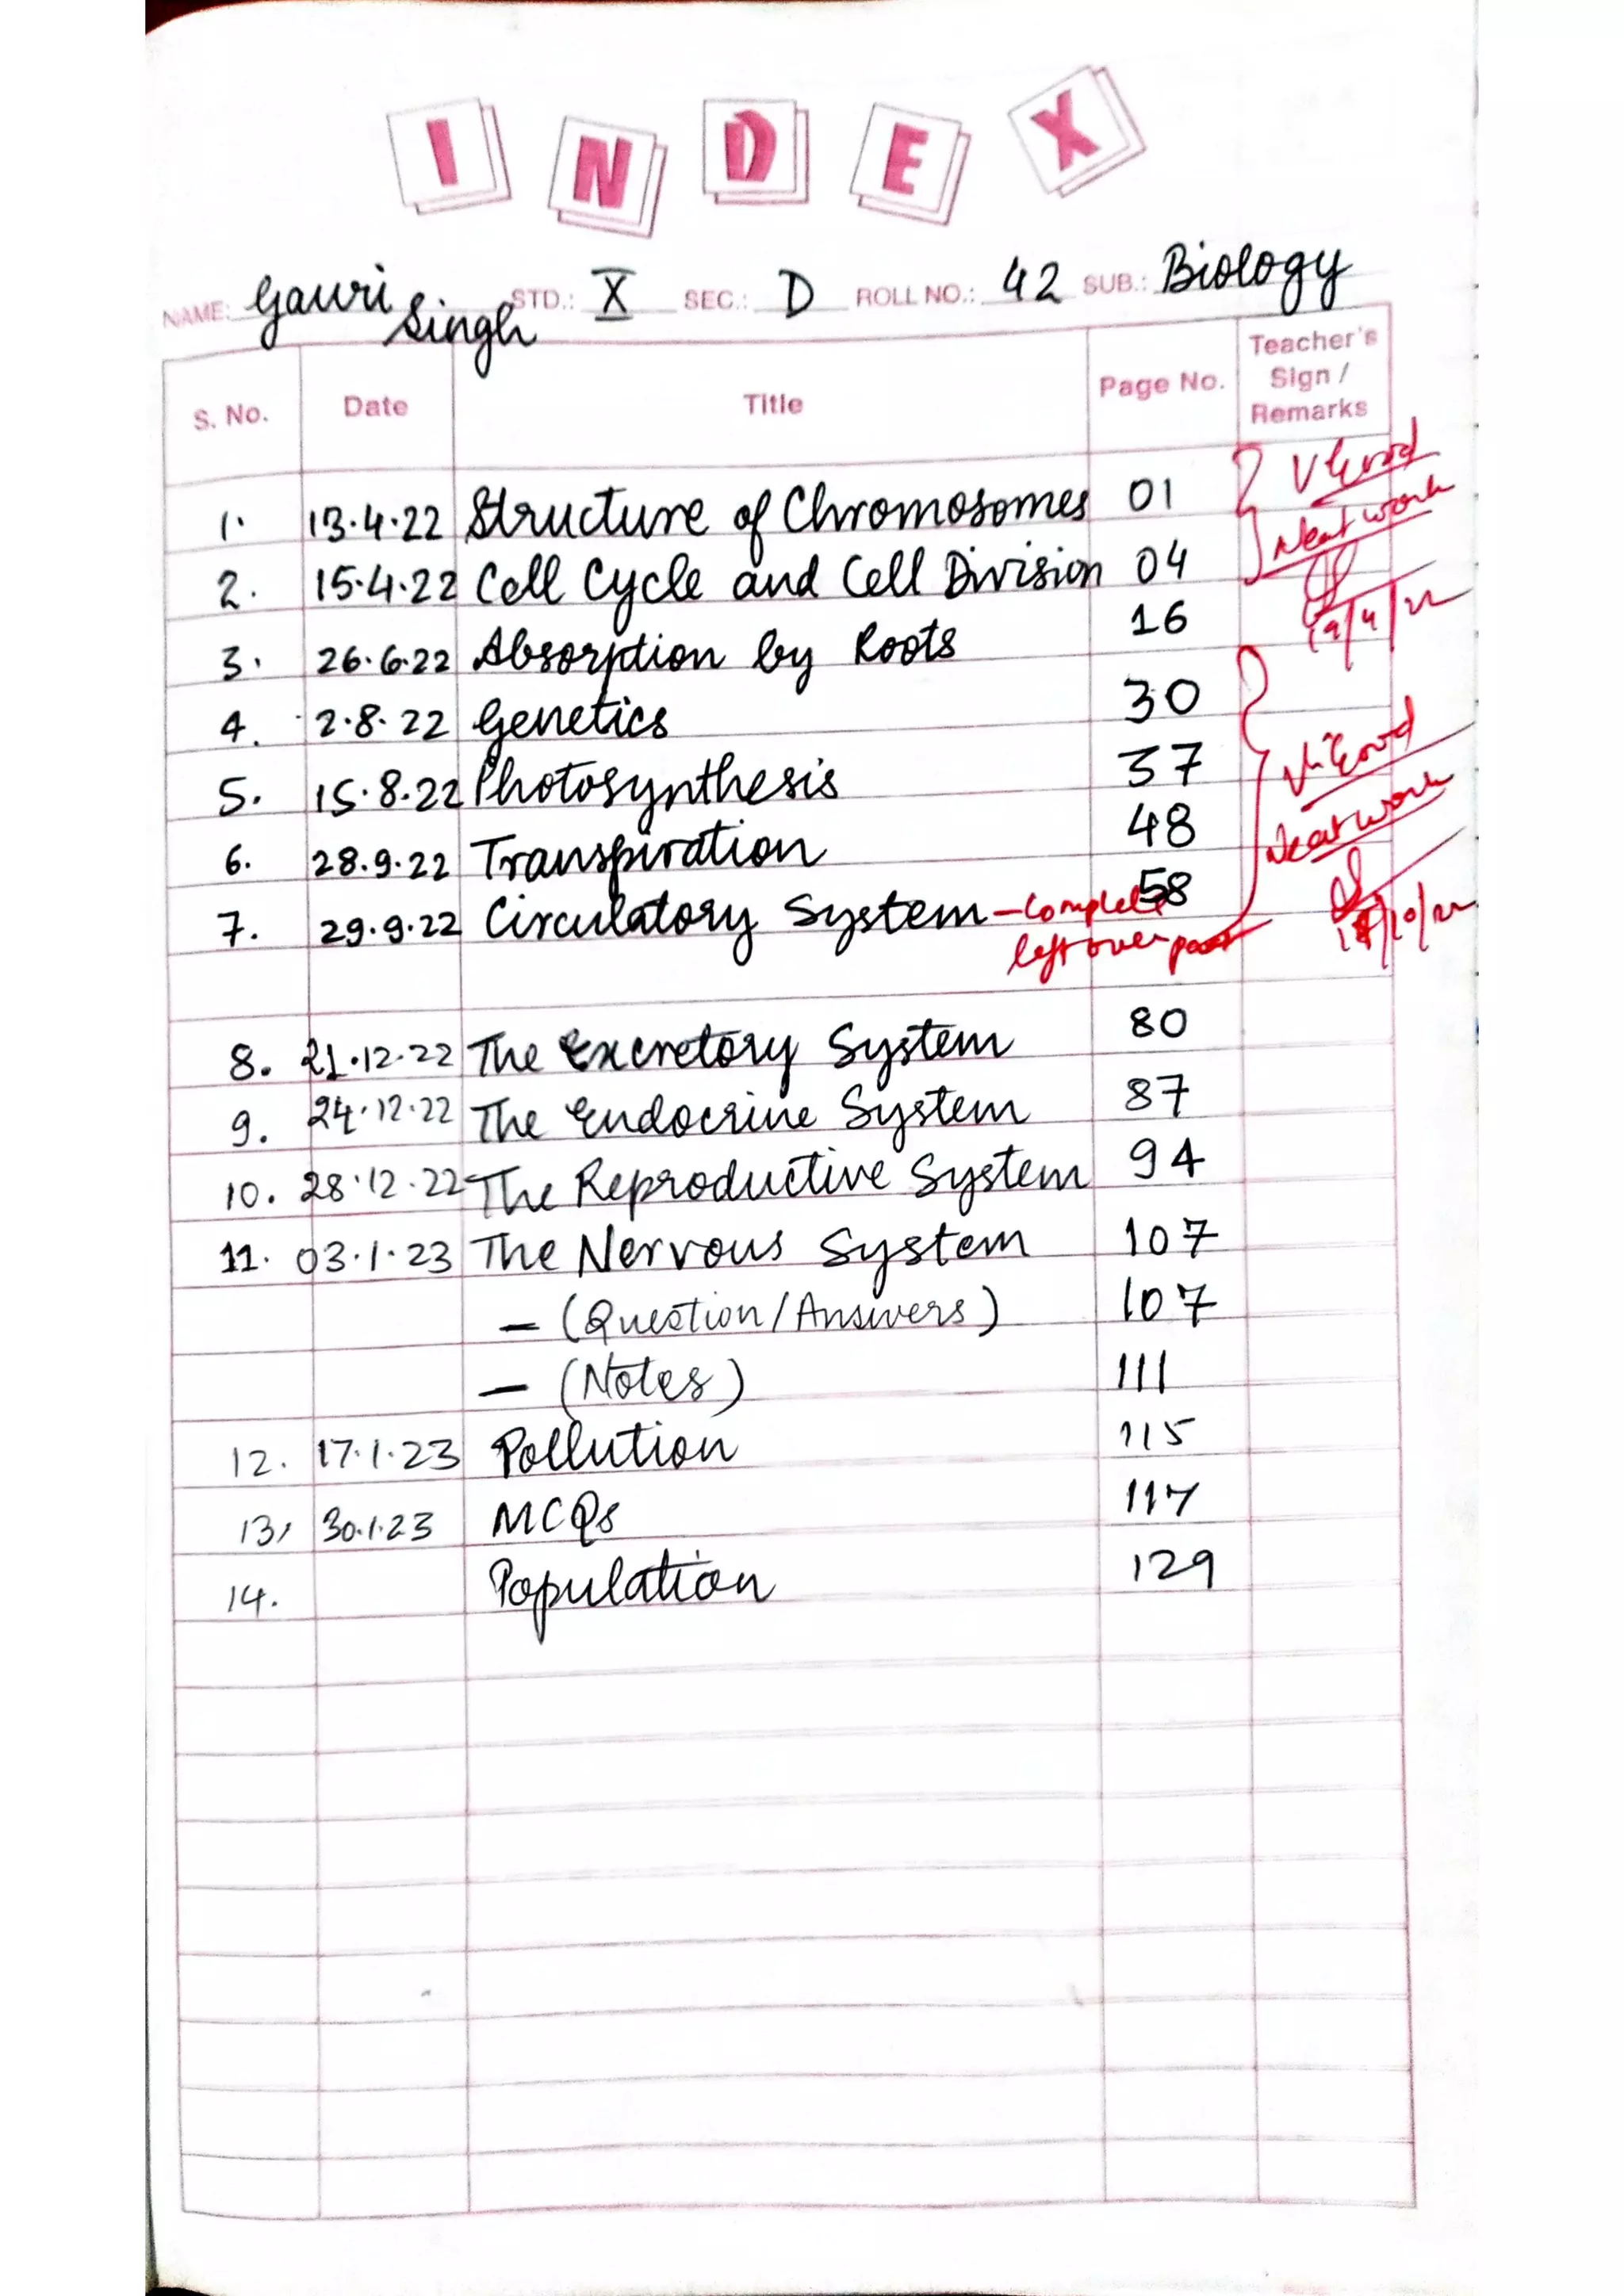 INDEX
NAME: Gauri Singh STD.: X SEC.: D ROLL NO.: 42 SUB.: Biology
S. No. Date Title Page No. Teacher's Sign / Remarks
1. 13.4.22 Structure of Chromosomes 01 V Good
2. 15.4.22 Cell Cycle and Cell Division 04 Neat work
3. 26.6.22 Absorption by Roots 16 19/4/22
4. 2.8.22 Genetics 30
5. 15.8.22 Photosynthesis 37 V. Good
6. 28.9.22 Transpiration 48 Neat work
7. 29.9.22 Circulatory System - Complete 58
left over part /10/22
8. 21.12.22 The Excretory System 80
9. 24.12.22 The Endocrine System 87
10. 28.12.22 The Reproductive System 94
11. 03.1.23 The Nervous System 107
- (Question/Answers) 107
- (Notes) 111
12. 17.1.23 Pollution 115
13, 30.1.23 MCQs 117
14. Population 129